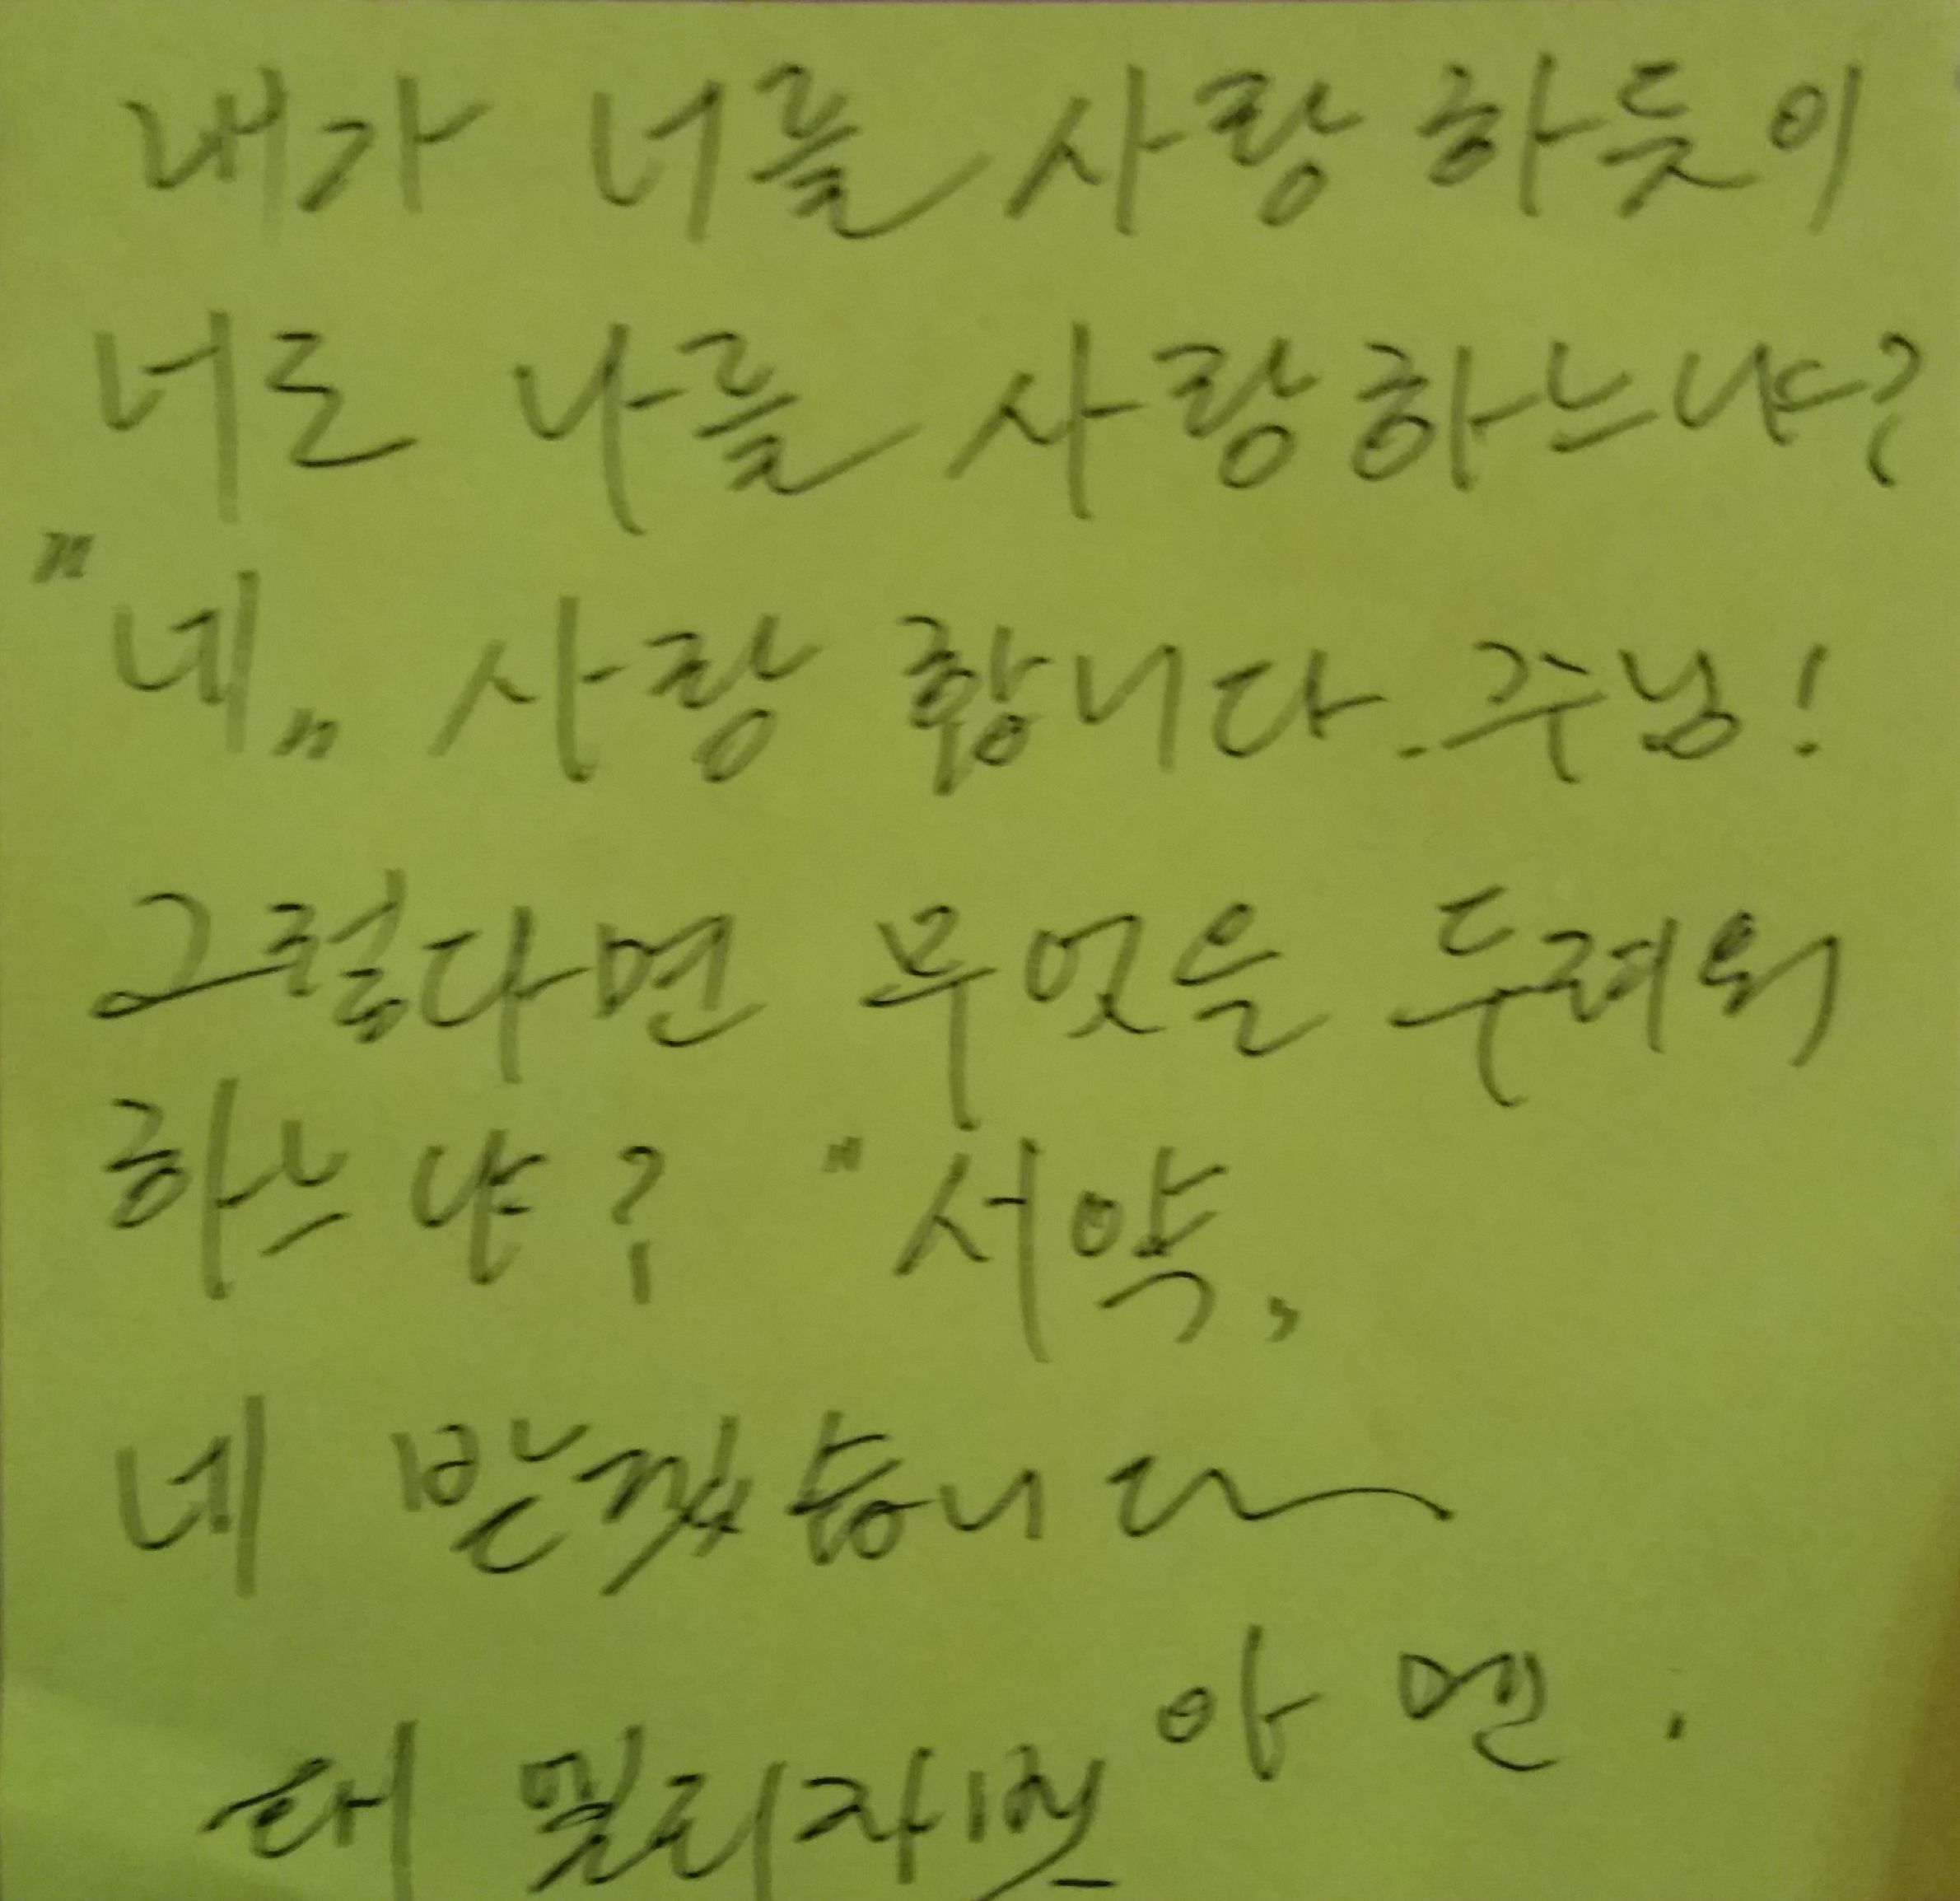 내가 너를 사랑하듯이
너도 나를 사랑하느냐?
"네" 사랑 합니다. 주님!
그렇다면 무엇을 두려워
하느냐? "서약,
네 받겠습니다
아멘.
태 엘리자벳